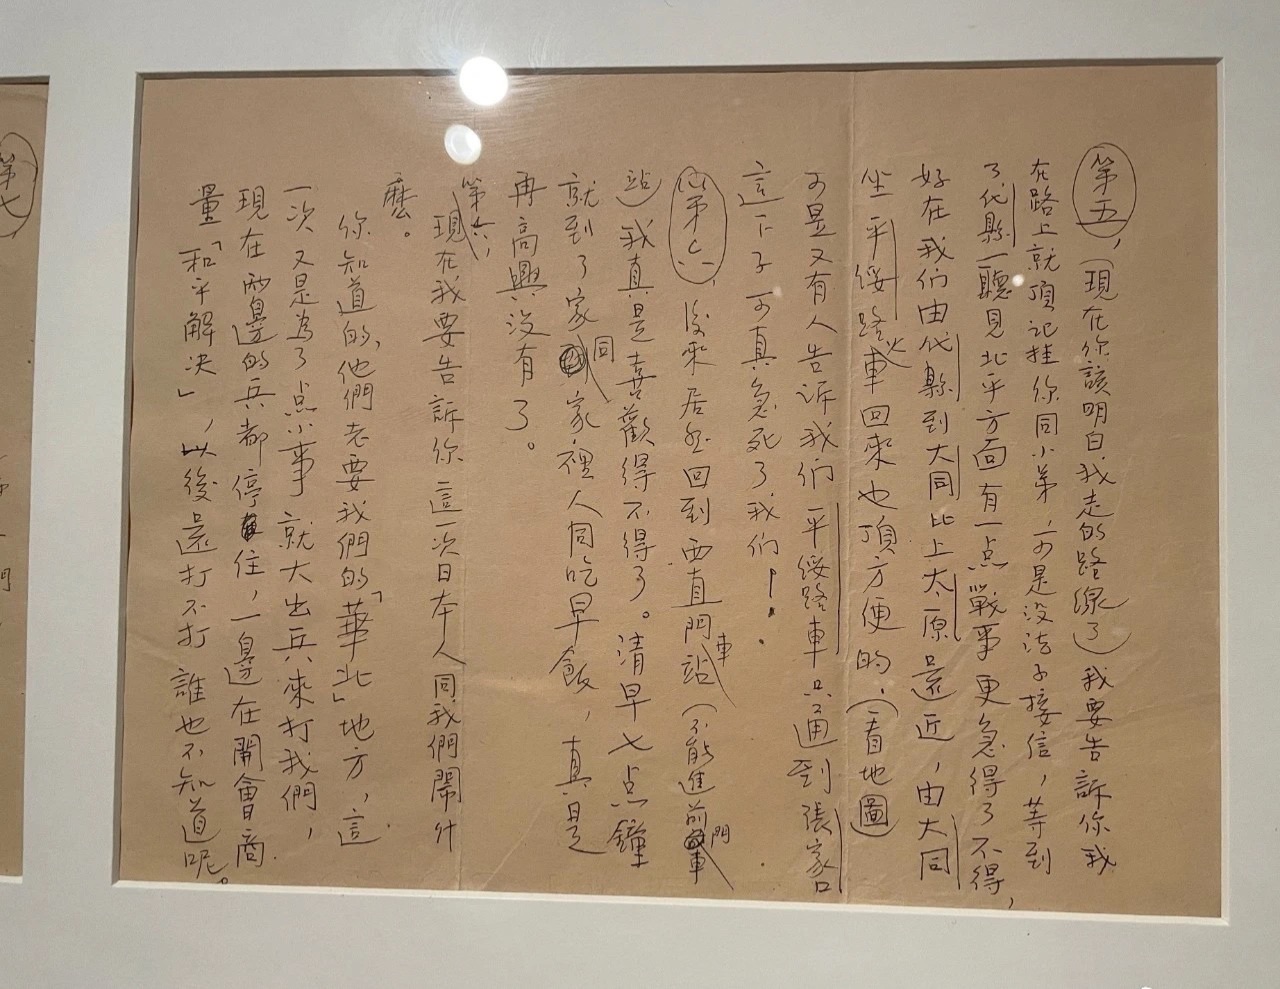 第五，(現在你該明白我走的路線了)我要告訴你我
在路上就頂記挂你同小弟，可是沒法子接信，等到
了代縣一聽見北平方面有一点戰事更急得了不得，
好在我们由代縣到大同比上太原還近，由大同
坐平綏路火車回來也頂方便的，(看地圖)
可是又有人告訴我们平綏路車只通到張家口
這下子可真急死了我们！
第六，後來居然回到西直門車站(不能進前門車
站)我真是喜歡得不得了。清早七点鐘
就到了家同家裡人同吃早飯，真是
再高興沒有了。
第六，
現在我要告訴你這一次日本人同我們鬧什
麼。
你知道的，他們老要我們的「華北」地方，這
一次又是為了点小事就大出兵來打我們，
現在兩邊的兵都停住，一邊在開會商
量「和平解決」，以後還打不打誰也不知道呢。
第七